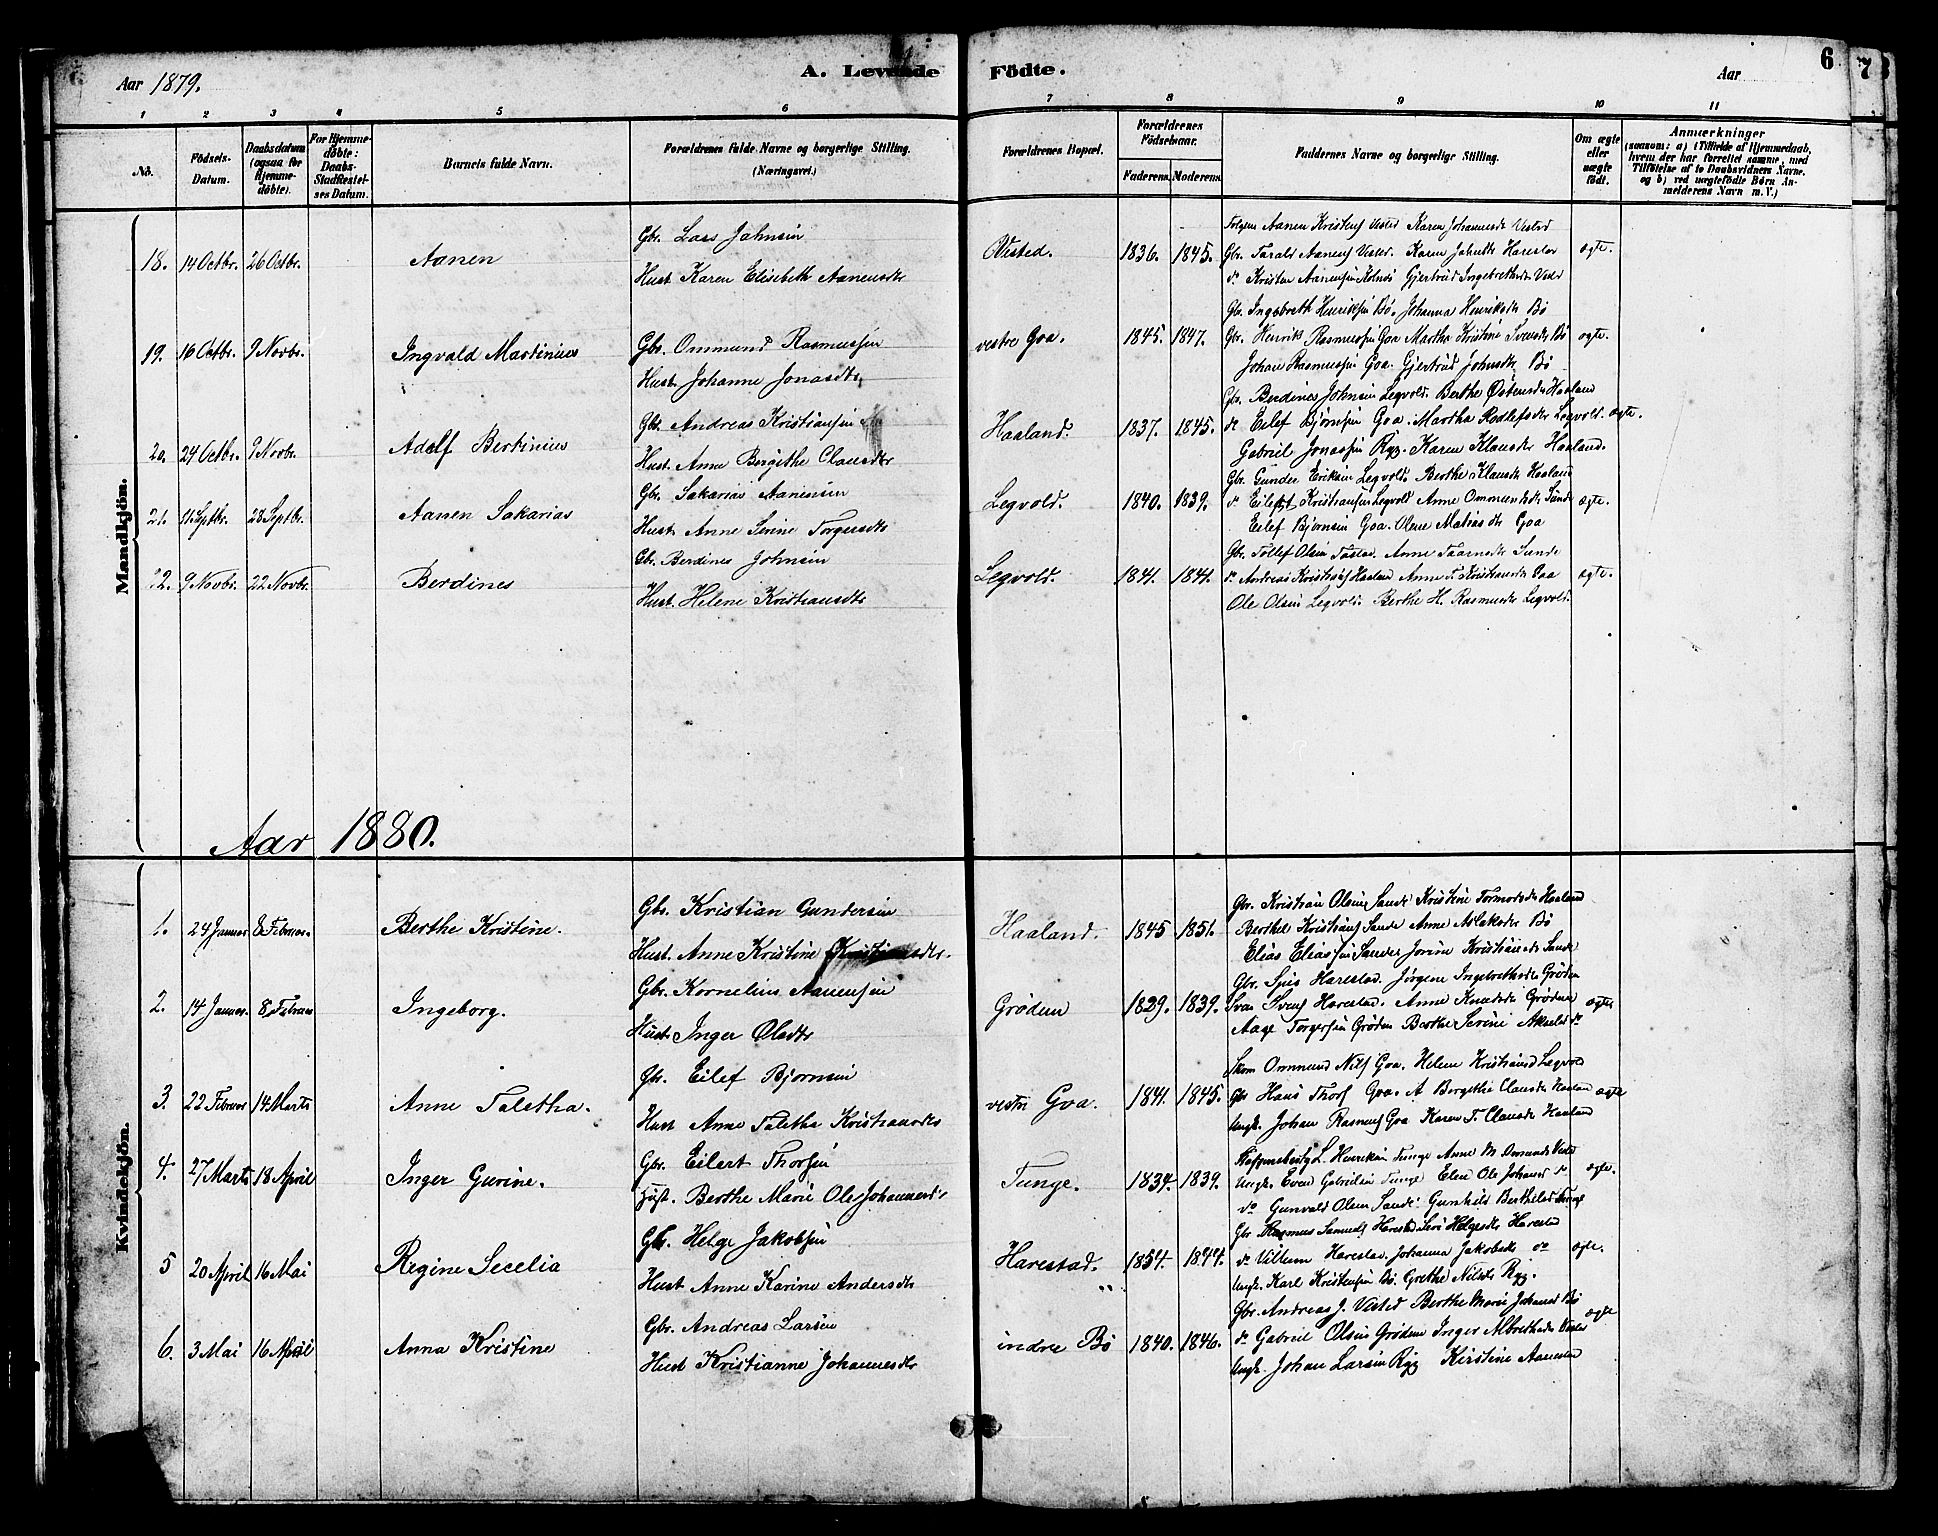 Aar 1879.
A. Levende Födte.
Aar
6
7
1 2 3 4 5 6 7 8 9 10 11
No.
Födsels-Datum.
Daabsdatum (ogsaa for Hjemmedöbte).
For Hjemmedöbte: Daabs-Stadfæstelses Datum.
Barnets fulde Navn.
Forældrenes fulde Navne og borgerlige Stilling. (Næringsvei.)
Forældrenes Bopæl.
Forældrenes Födselsaar.
Faderens. Moderens.
Faddernes Navne og borgerlige Stilling.
Om ægte eller uægte födt.
Anmærkninger
(saasom: a) i Tilfælde af Hjemmedaab, hvem der har forrettet samme, med Tilföielse af to Daabsvidners Navne, og b) ved uægtefödte Börn Anmelderens Navn m. V.)
Mandkjön.
18. 14 Octbr. 26 Octbr. Aanen
Gbr. Lars Johnsen
Hust. Karen Elisabeth Aanensdtr
Visted. 1836. 1845.
Karen Johannesdtr Visted
Gbr. Tarald Aanens Visted. Karen Johnsdtr Harestad
do Kristen Aanensen Gjertrud Ingebretsdtr Visted
ægte.
19. 16 Octbr. 9 Novbr. Ingvald Martinius
Gbr. Ommund Rasmussen
Hust. Johanne Jonasdtr
vestre Goa. 1845. 1847.
Gbr. Ingebreth Henriksen Bö. Johanna Henriksdtr Bö
Gbr. Henrik Rasmussen Goa Martha Kristine Svensdtr Bö
Johan Rasmussen Goa. Gjertrud Johnsdtr Bö
ægte.
20. 24 Octbr. 9 Novbr. Adolf Bertinius
Gbr. Andreas Kristiansen
Hust. Anne Bergithe Clausdtr
Haaland. 1837. 1845.
Gbr. Berdines Johnsen Legvold. Berthe Östensdtr Haaland
do Eilef Björnsen Goa. Martha Rodlefsdtr Legvold.
Gabriel Jonassen Ryg. Karen Klausdtr Haaland.
ægte.
21. 11 Septbr. 28 Septbr. Aanen Sakarias
Gbr. Sakarias Aanensen
Hust. Anne Serine Torgersdtr
Legvold. 1840. 1839.
Gbr. Gunder Eriksen Legvold. Berthe Klausdtr Haaland
do Eilert Kristiansen Legvold Anne Ommundsdtr Sunde
Eilef Björnsen Goa. Olene Matiasdtr Goa
ægte.
22. 9 Novbr. 22 Novbr. Berdines
Gbr. Berdines Johnsen
Hust. Helene Kristiansdtr
Legvold. 1841. 1841.
Gbr. Tollef Olsen Tastad. Anne Sunde
do Andreas Kristians Haaland Anne T. Kristiansdtr Goa
Ole Olsen Legvold. Berthe H. Rasmusdtr Legvold.
ægte.
Aar 1880.
Kvindekjön.
1. 24 Januar 8 Februar. Berthe Kristine.
Gbr. Kristian Gundersen
Hust. Anne Kristine Kristiansdtr.
Haaland. 1845 1851.
Gbr. Kristian Olsen Sande Kristine Tormodsdtr Haaland
Berthel Kristians Sande Anne Aslaksdtr Bö
Elias Eliassen Sande Jorine Kristiansdtr Sande
2. 14 Januar. 8 Februar Ingeborg.
Gbr. Kornelius Aanensen
Hust. Inger Olsdtr
Grödem 1829. 1839.
Gbr. Harestad. Jörgene Ingebretsdtr Gröden
Svens Harestad. Anne Knudsdtr Gröden
Aage Torgersen Gröden Berthe Serine do
ægte
3. 22 Februar 14 Marts Anne Taletha.
Gbr. Eilef Bjornsen
Hust Anne Taletha Kristiansdtr
vestre Goa. 1841. 1845.
Ommund Nils Goa. Helene Kristiansd Legvold
Gbr Hans Thors Goa. A Bergethe Clausdtr Haaland
Ungk. Johan Rasmus Goa Karen T. Clausdtr Haaland
ægte
4. 27 Marts 18 April Inger Gurine.
Gbr. Eilert Thorsen
Hust. Berthe Marie Ole Johannesdtr
Tunge. 1834. 1839.
L. Henriksen Tunge Anne M. Omundsdtr Visted
Ungk. Even Gabrielsen Tunge Elen Ole Johansd do
do Gunvald Olsen Sande Gunhild Berthelsd Tunge
ægte.
5 20 April 16 Mai Regine Secelia
Gbr. Helge Jakobsen
Hust Anne Karine Andersdtr
Harestad. „ 1854. 1844.
Gbr Rasmus Samuels Harestad Siri Helgesdtr Harestad
do Vilhem Harestad. Johanna Jakobsdtr do
Ungk. Karl Kristensen Bö. Grethe Nilsdtr Ryg.
ægte.
6. 3 Mai 16 April Anna Kristine
Gbr. Andreas Larsen
Hust Kristianne Johannesdtr
indre Bö 1840. 1846.
Gbr. Andreas J. Visted Berthe Marie Johansd Bö
do Gabriel Olsen Grödem Inger Albrethsdtr Visted
Ungk. Johan Larsen Ryg Kirstine Aanensd
ægte